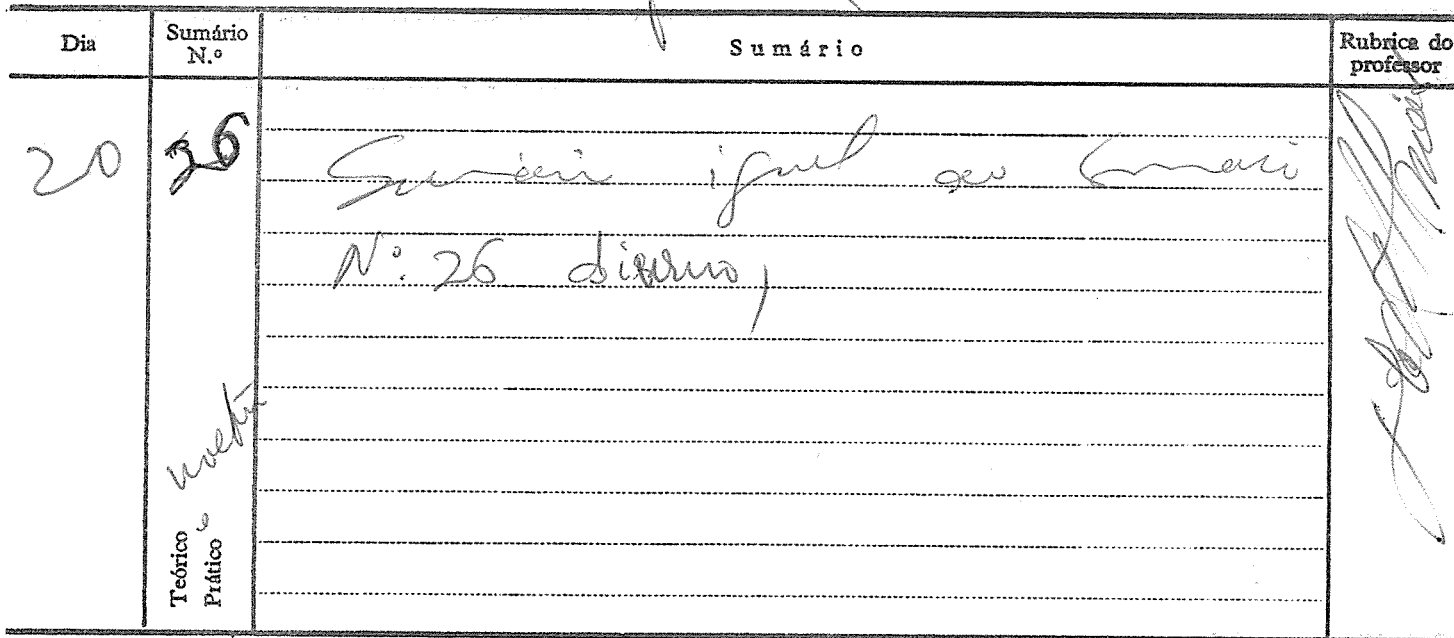 Dia
Sumário
N.º
Sumário
Rubrica do
professor
20
26
Sumário igual ao Sumário
N.º 26 diurno,
Teórico
Prático